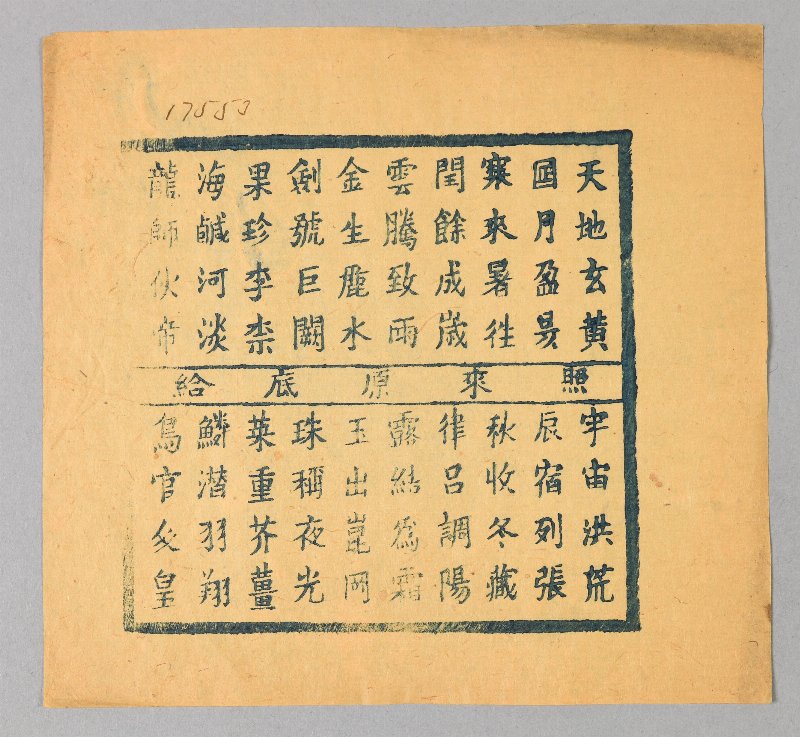 17553
天地玄黃
囸月盈昃
寒來暑往
閏餘成歲
雲騰致雨
金生麗水
劍號巨闕
果珍李柰
海鹹河淡
龍師伙帝
照來原底給
宇宙洪荒
辰宿列張
秋收冬藏
律呂調陽
露結爲霜
玉出崑岡
珠稱夜光
菜重芥薑
鱗潜羽翔
鳥官人皇